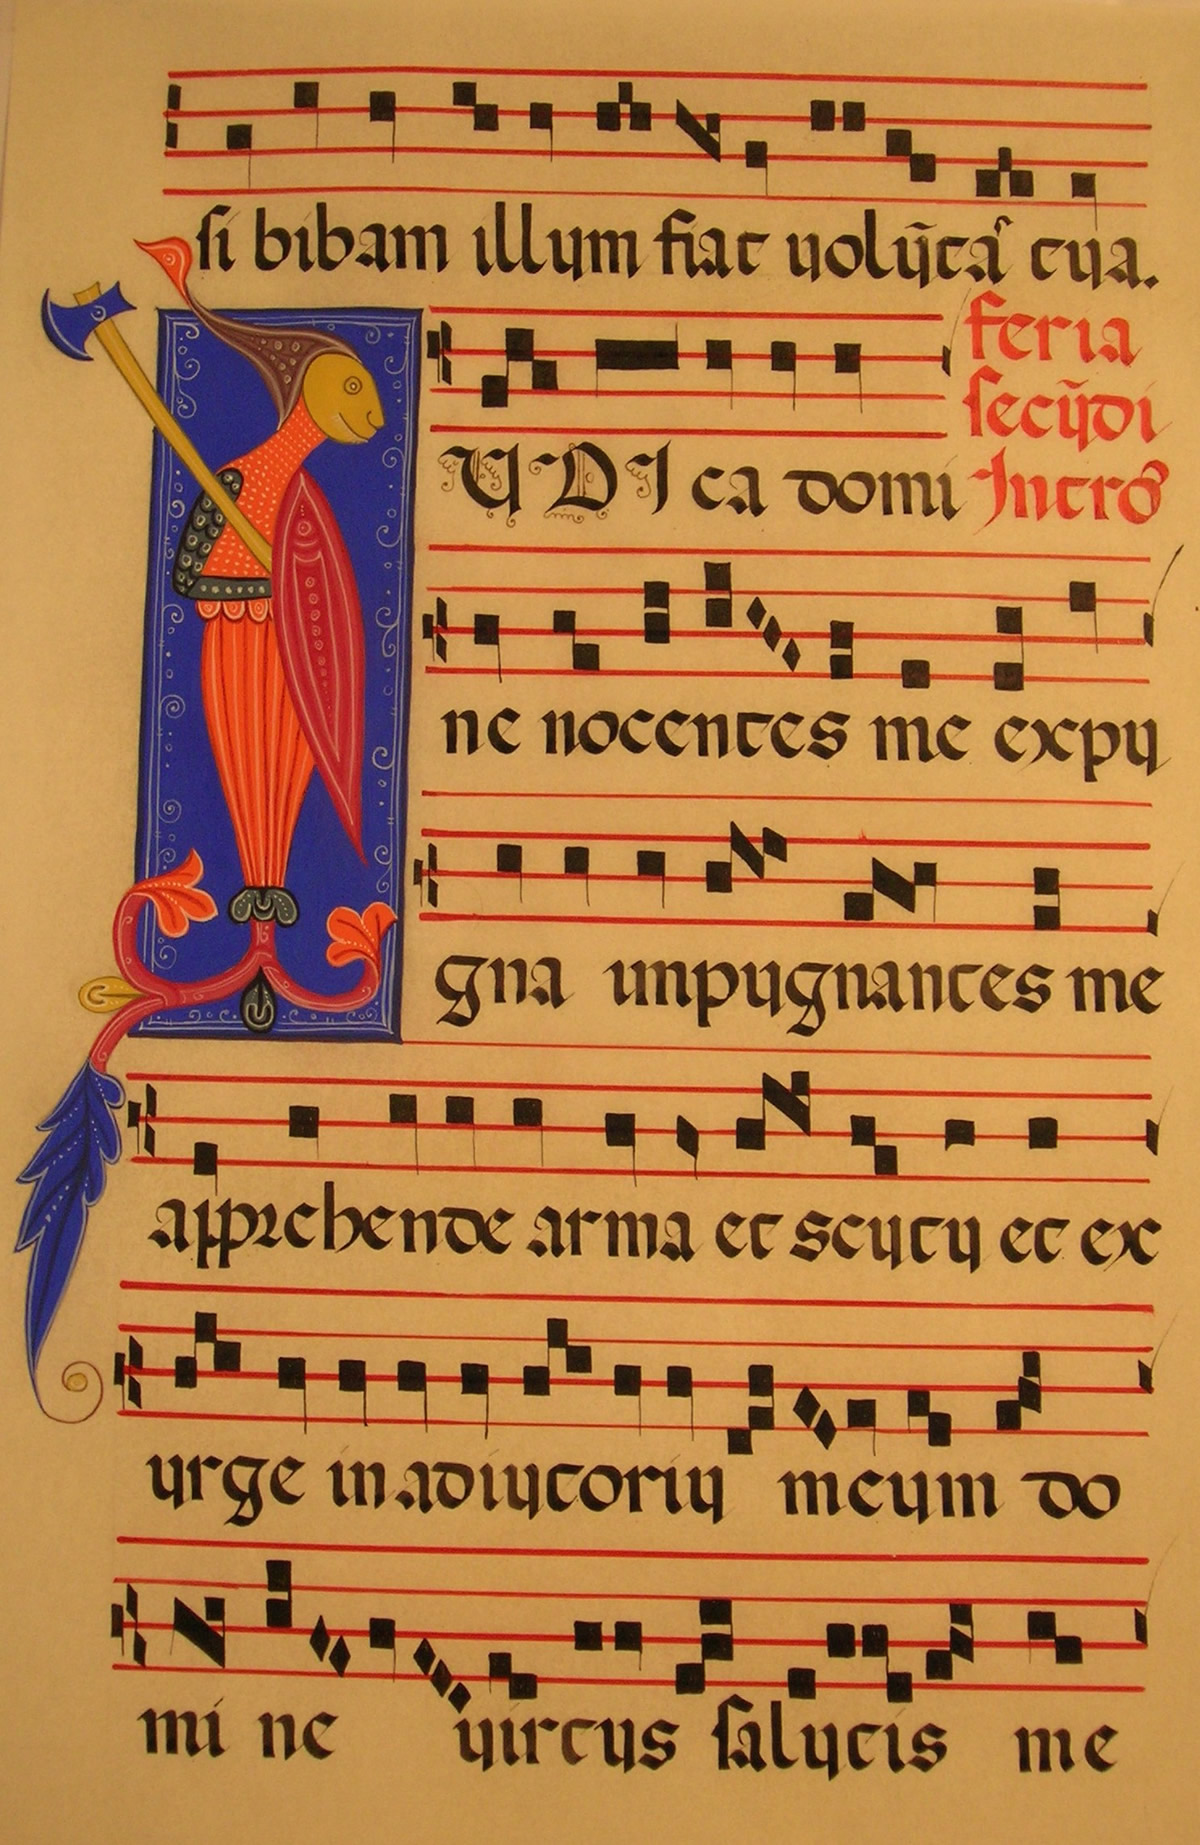 si bibam illum fiat volũtaˢ tua.
feria
secũdi
IUDI ca domi Introˢ
ne nocentes me expu
gna inpugnantes me
apprehende arma et scutu et ex
urge in adiutoriu meum do
mi ne virtus salutis me